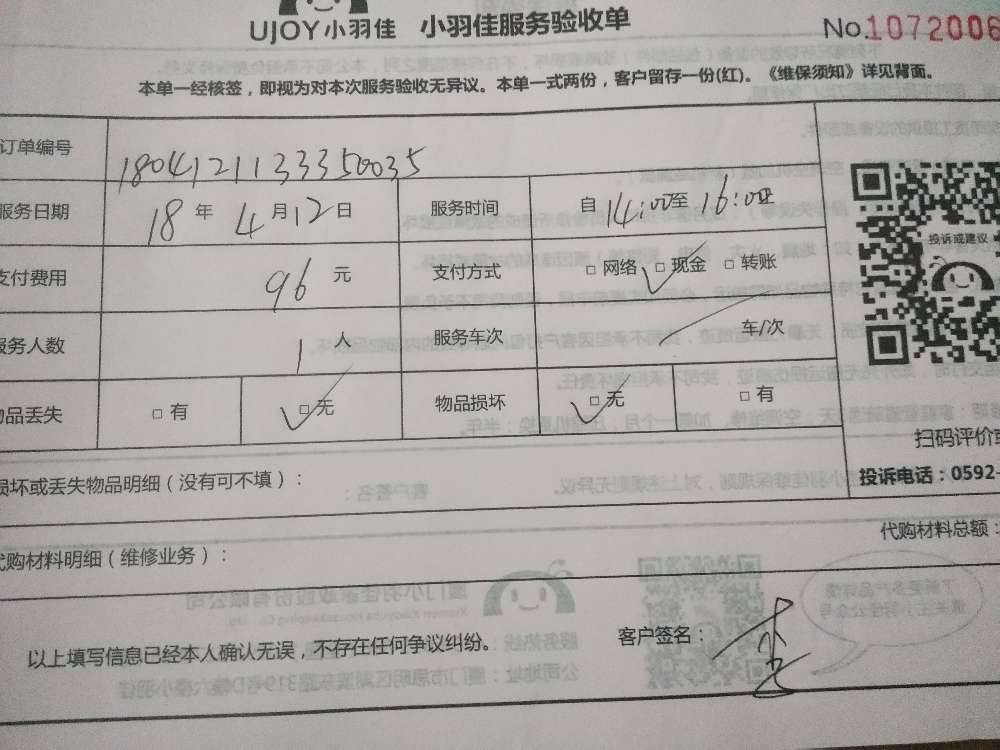 UJOY小羽佳 小羽佳服务验收单 No.1072006
本单一经核签，即视为对本次服务验收无异议。本单一式两份，客户留存一份(红)。《维保须知》详见背面。
订单编号 1804121133350035
服务日期 18 年 4 月 12 日 服务时间 自 14:00 至 16:00
支付费用 96 元 支付方式 □ 网络 □ 现金 □ 转账
服务人数 1 服务车次 车/次
物品丢失 □ 有 □ 无 物品损坏 □ 无 □ 有
投诉或建议
扫码评价或
投诉电话：0592-
损坏或丢失物品明细（没有可不填）：
代购材料明细（维修业务）： 代购材料总额：
以上填写信息已经本人确认无误，不存在任何争议纠纷。 客户签名：